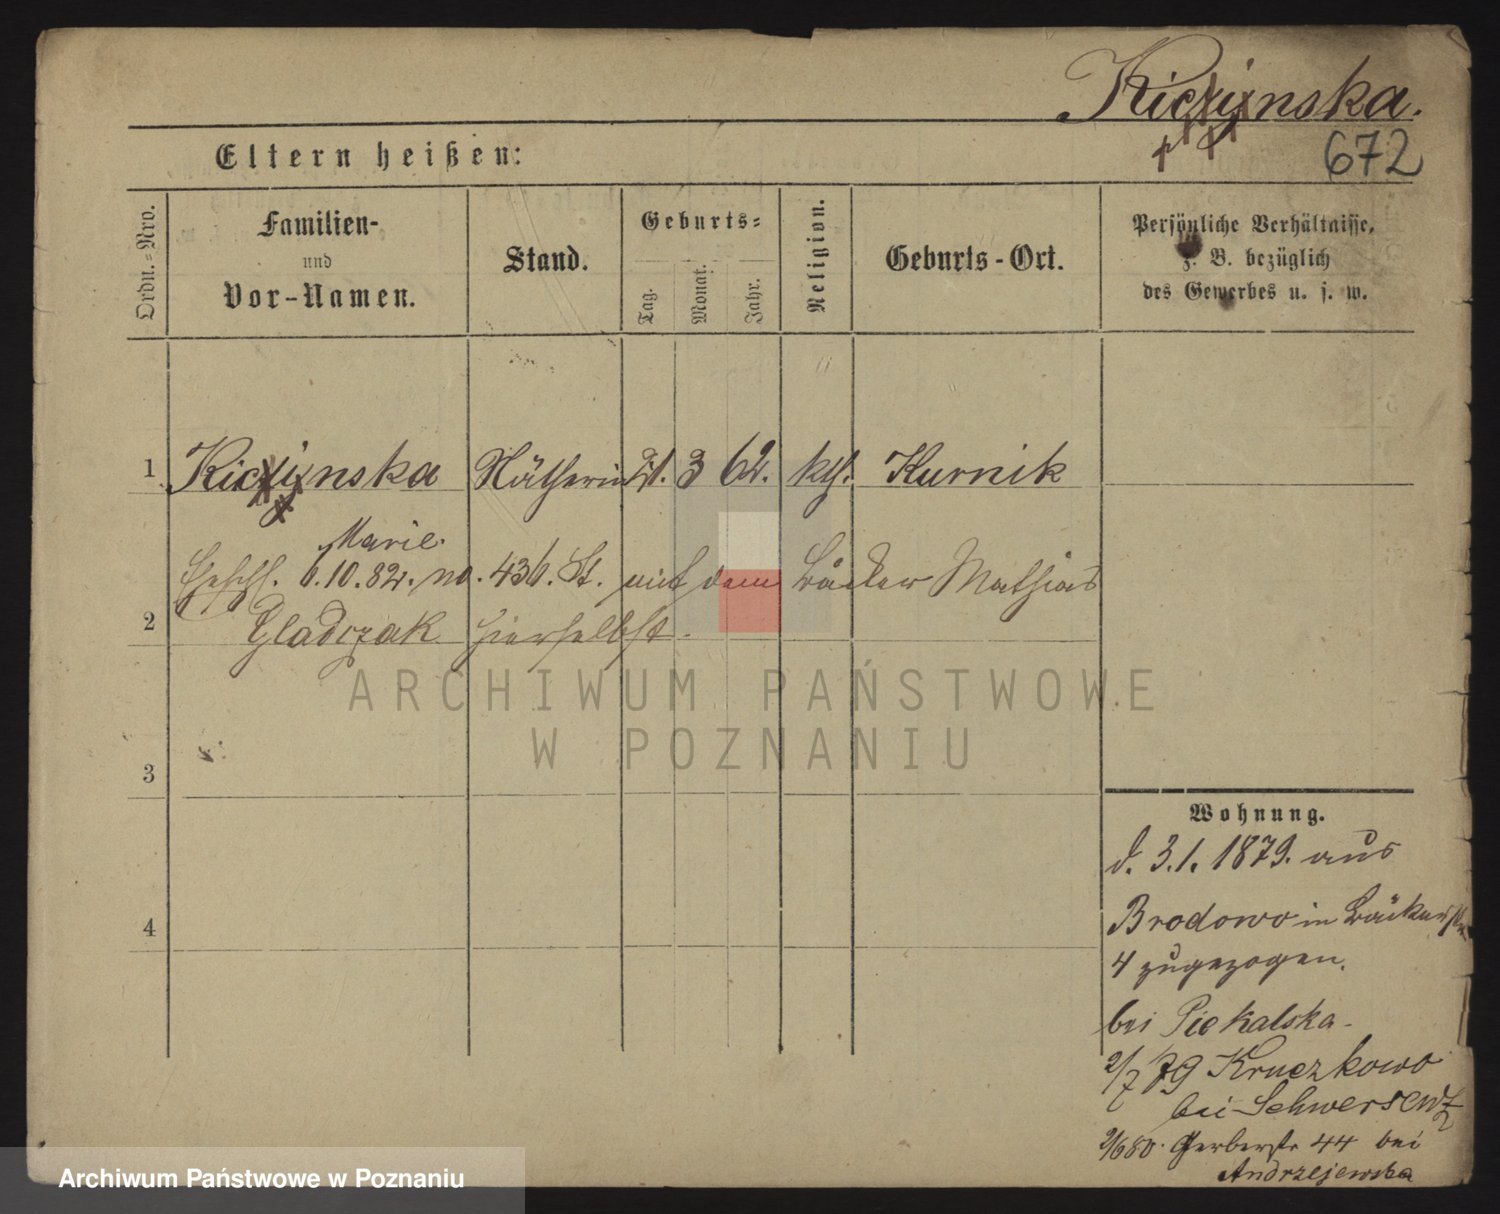 Kiczynska.
672
Eltern heißen:
Ordn.-Nro.
Familien-
und
Vor-Namen.
Stand.
Geburts-
Tag.
Monat.
Jahr.
Religion.
Geburts-Ort.
Persönliche Verhältnisse,
z. B. bezüglich
des Gewerbes u. s. w.
1 Kiczynska Nätherin 21. 3 62. kth. Kurnik
Marie.
Ehesch. 6.10.82. no. 436. St. mit dem Bäcker Mathias
2 Gladczak hierselbst.
ARCHIWUM PAŃSTWOWE
W POZNANIU
3
Wohnung.
d. 3.1.1879. aus
Brodowo in Bäckerstr
4
4 zugezogen.
bei Piekalska.
2/7 79 Kruczkowo
bei Schwersenz
2/6 80. Gerberstr 44 bei
Andrzejewska
Archiwum Państwowe w Poznaniu